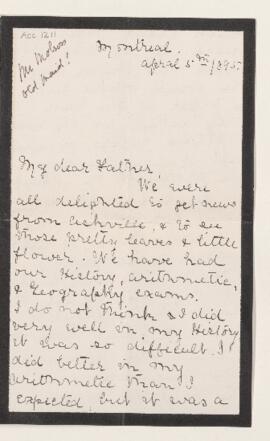 ACC 1211
Mr Molson
old maid!
Montreal.
April 5th/895.
My dear Father,
We were
all delighted to get news
from Asheville, & to see
those pretty leaves & little
flower. We have had
our History, arithmetic,
& Geography exams.
I do not think I did
very well in my History
it was so difficult. I
did better in my
arithmetic than I
expected, but it was a